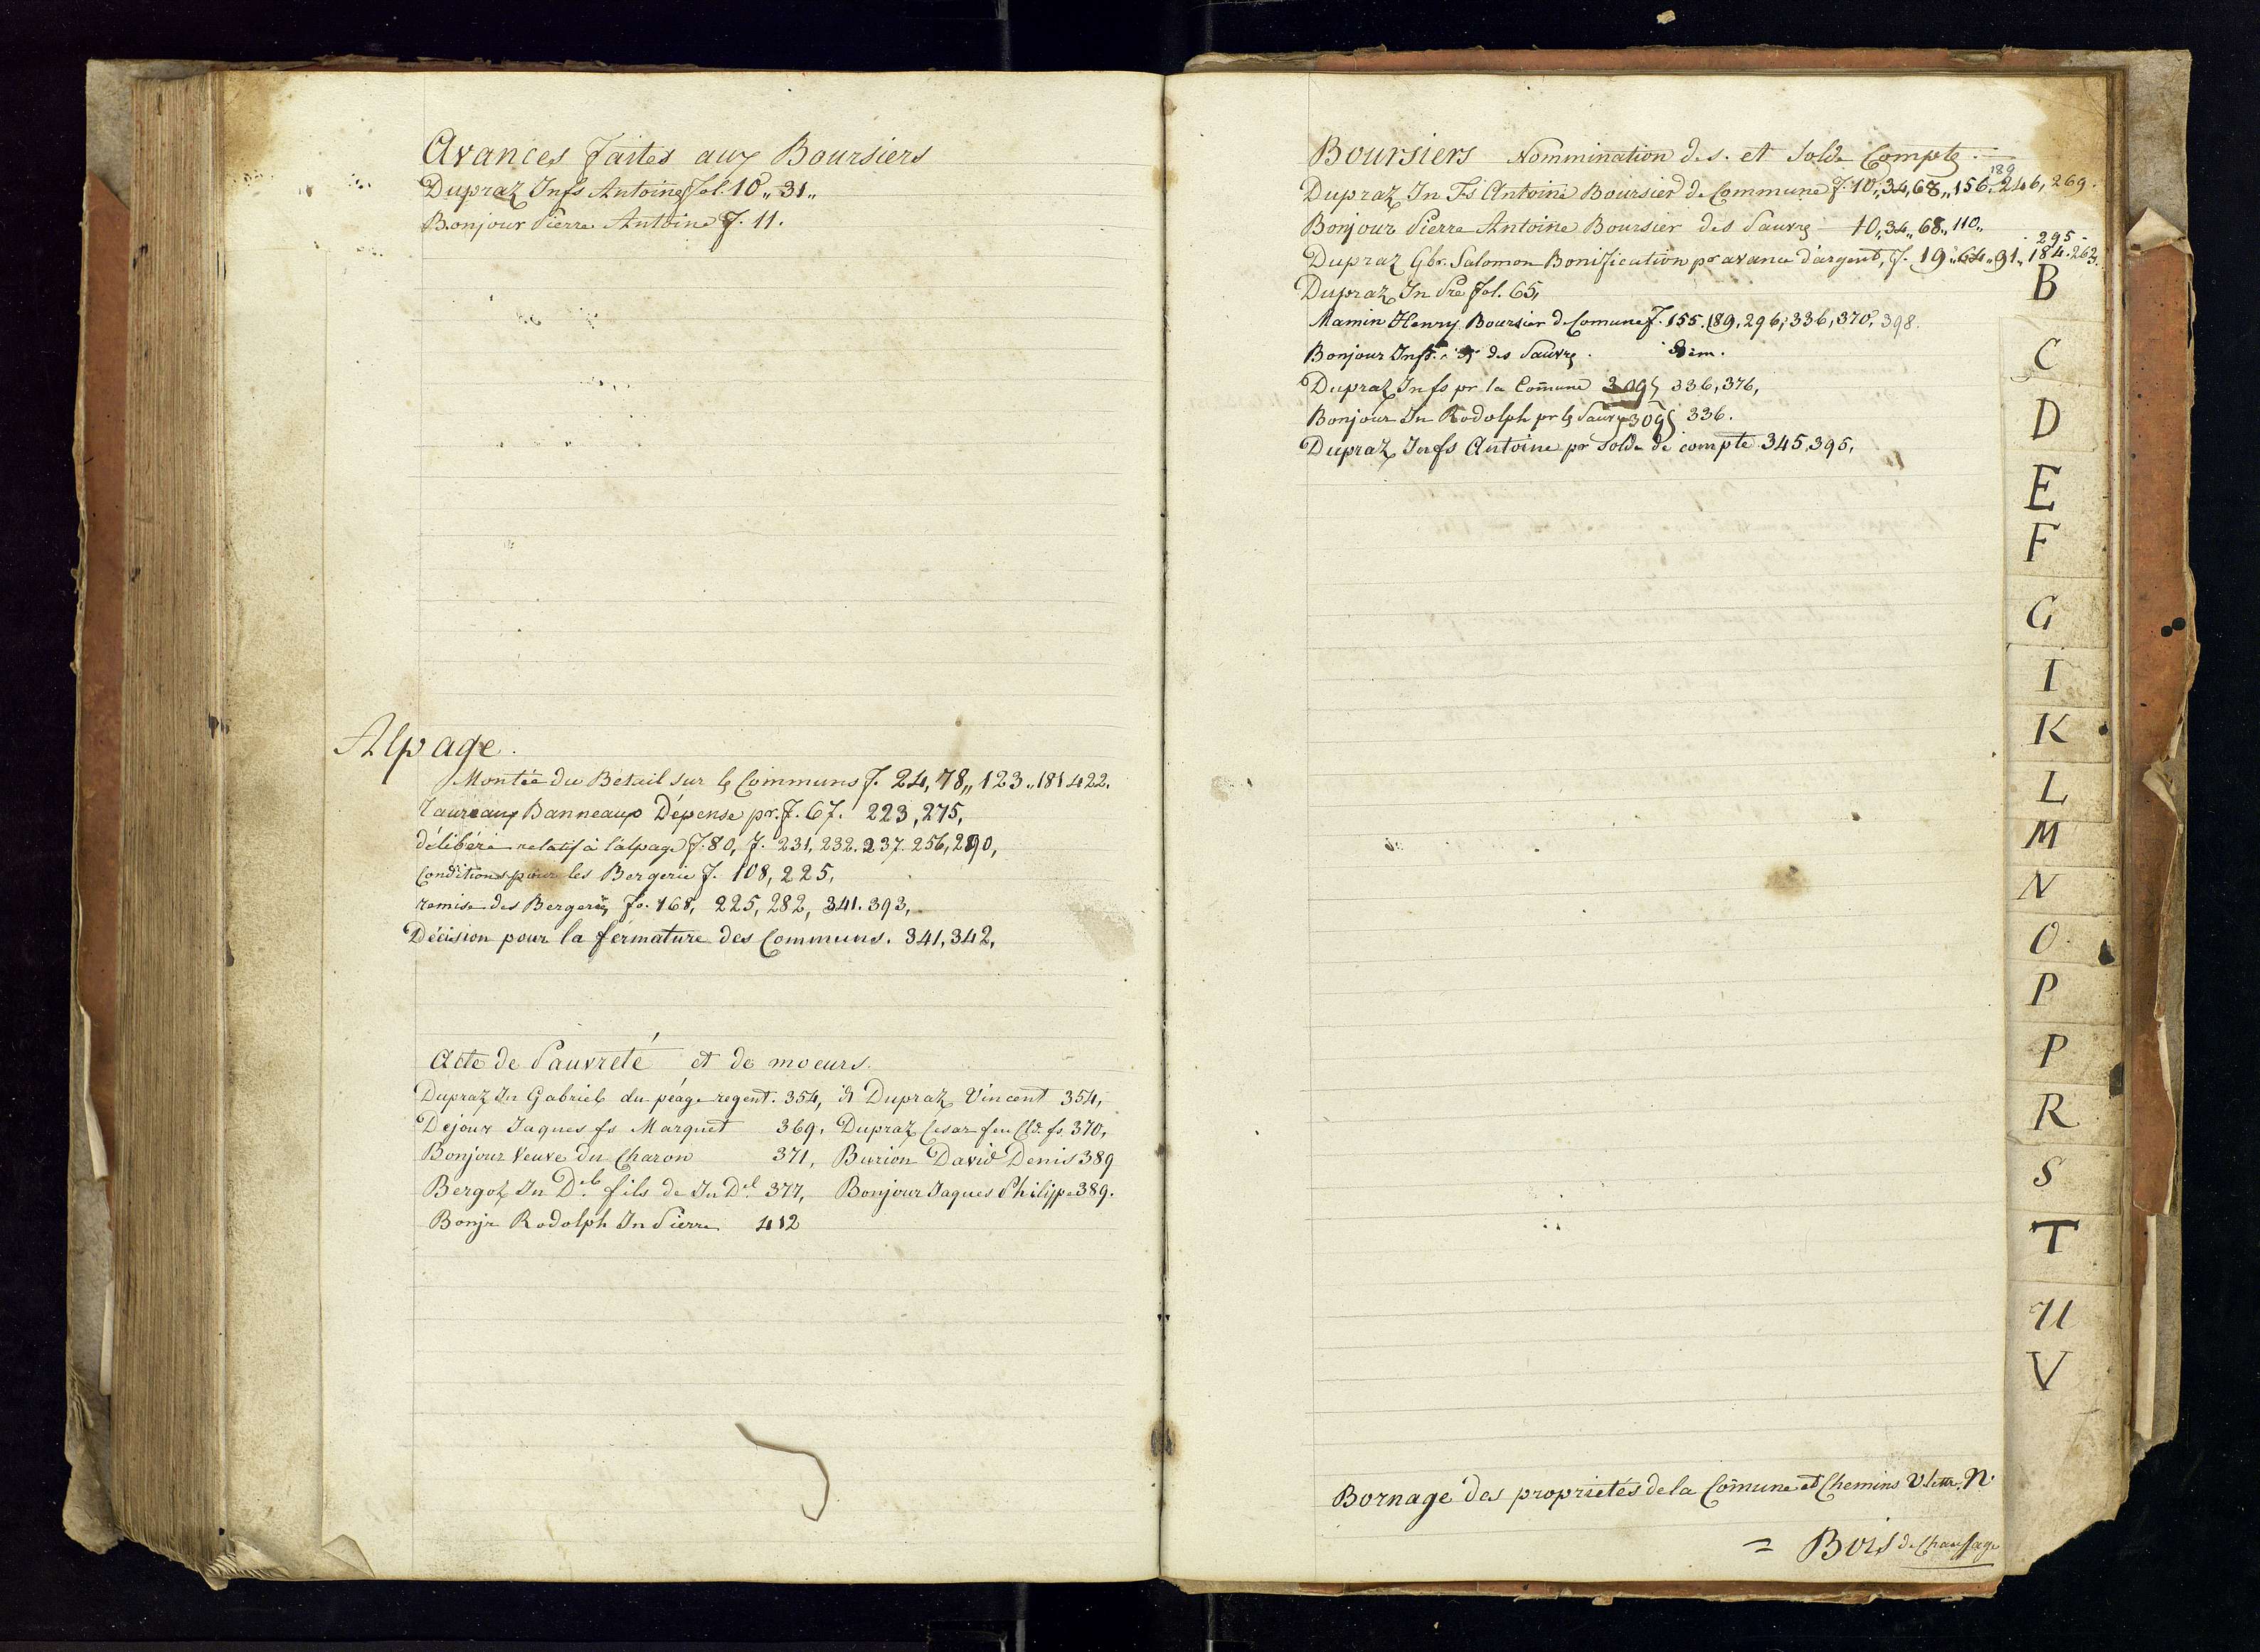 Avances faites aux Boursiers
Dupraz Jn fs Antoine fol. 10,, 31,,
Bonjour Pierre Antoine f. 11.
Alpage.
Montée du Bétail sur les Communs f. 24, 78,, 123,, 181 422.
Taureaux Banneaux Dépense pr. f. 67. 223, 275,
délibéré relatif à l'alpage f. 80, f. 231, 232. 237. 256, 290,
Conditions pour les Bergerie f. 108, 225,
remise des Bergeries fo. 168, 225, 282, 341. 393,
Décision pour la fermature des Communs. 341, 342,
Acte de Pauvreté et de moeurs.
Dupraz Jn Gabriel du péage regent. 354, & Dupraz Vincent 354,
Dejour Jaques fs Marguet 369, Dupraz Cesar feu Cld. fs. 370,
Bonjour Veuve du Charon 371, Burion David Denis 389
Bergoz Jn Del. fils de Jn Del 377, Bonjour Jaques Philippe 389.
Bonjr Rodolph Jn Pierre 412
Boursiers Nommination des. et Solde Compte.
189
Dupraz Jn Fs Antoine Boursier de Commune f. 10, 34, 68,, 156, 246, 269.
Bonjour Pierre Antoine Boursier des Pauvres 10,, 34,, 68,, 110,,
295
Dupraz Gbr. Salomon Bonification pr avance d'argent, f. 19,, 64,, 91,, 184. 263.
Dupraz Jn Pre fol. 65,
Mamin Henry Boursier de Comune f. 155. 189, 296, 336, 370, 398.
Bonjour Jn fs. des Pauvres. Idem.
Dupraz Jn fs pr la Comune 309, 336, 376,
Bonjour Jn Rodolph pr les Pauvres 309, 336.
Dupraz Jn fs Antoine pr Solde de compte 345, 395,
B
C
D
E
F
G
I
K
L
M
N
O
P
P
R
S
T
U
V
Bornage des proprietés de la Comune et Chemins V. lettr. N.
= Bois de Chauffage